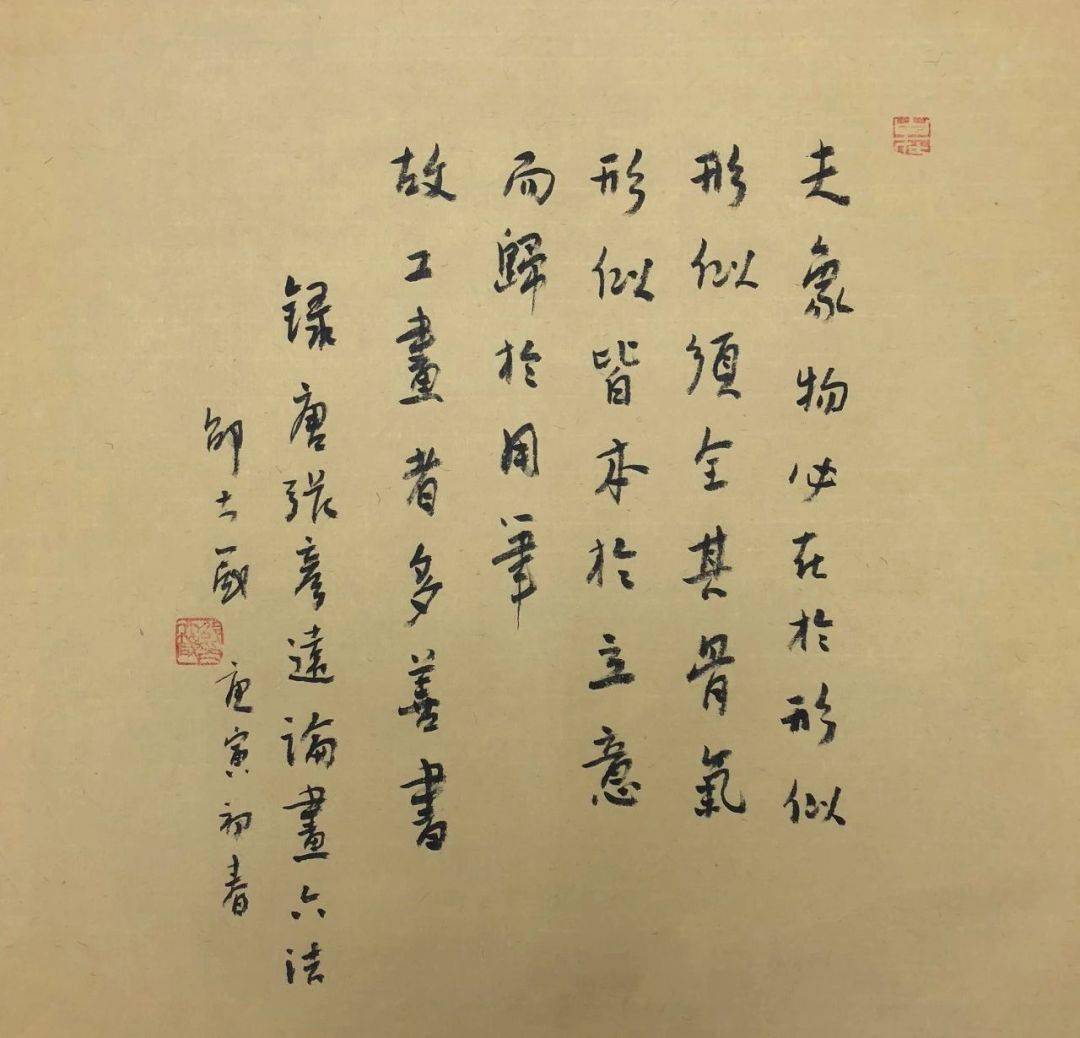 夫象物必在於形似
形似須全其骨氣
形似皆本於立意
而歸於用筆
故工畫者多善書
録唐張彦遠論畫六法
庚寅初春